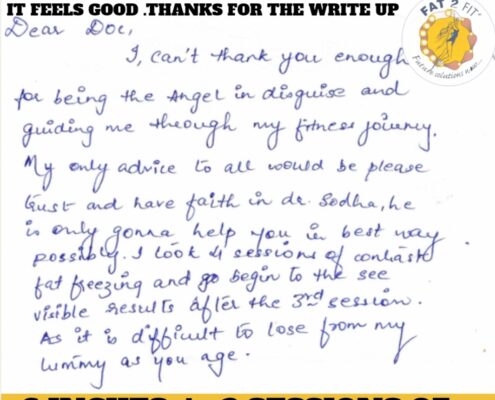 IT FEELS GOOD .THANKS FOR THE WRITE UP
FAT 2 FIT
Dear Doc,
I, can't thank you enough
for being the Angel in disguise and
guiding me through my fitness journey.
My only advice to all would be please
trust and have faith in dr. Sodha, he
is only gonna help you in best way
possibly. I took 4 sessions of contrast
fat freezing and go begin to the see
visible results after the 3rd session.
As it is difficult to lose from my
tummy as you age.